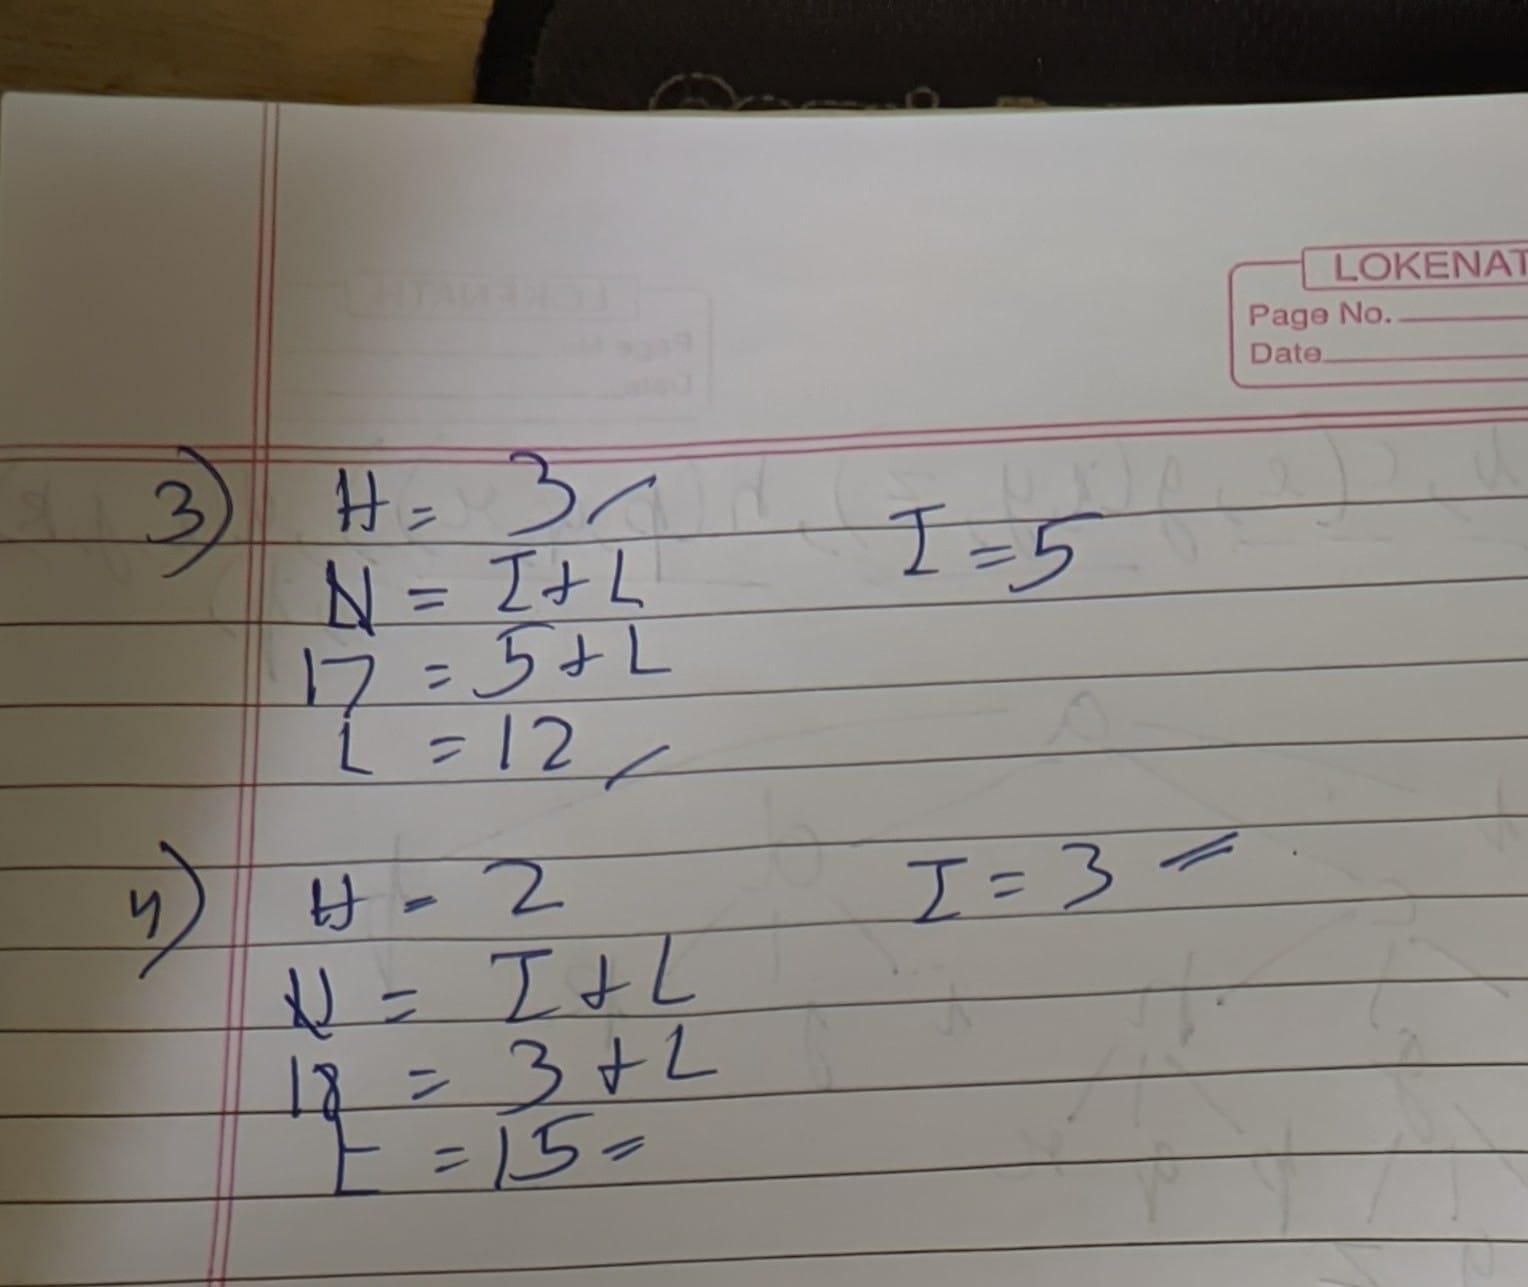 LOKENAT
Page No.
Date
3) H = 3
I = 5
N = I + L
17 = 5 + L
L = 12
4) H = 2 I = 3
N = I + L
18 = 3 + L
L = 15